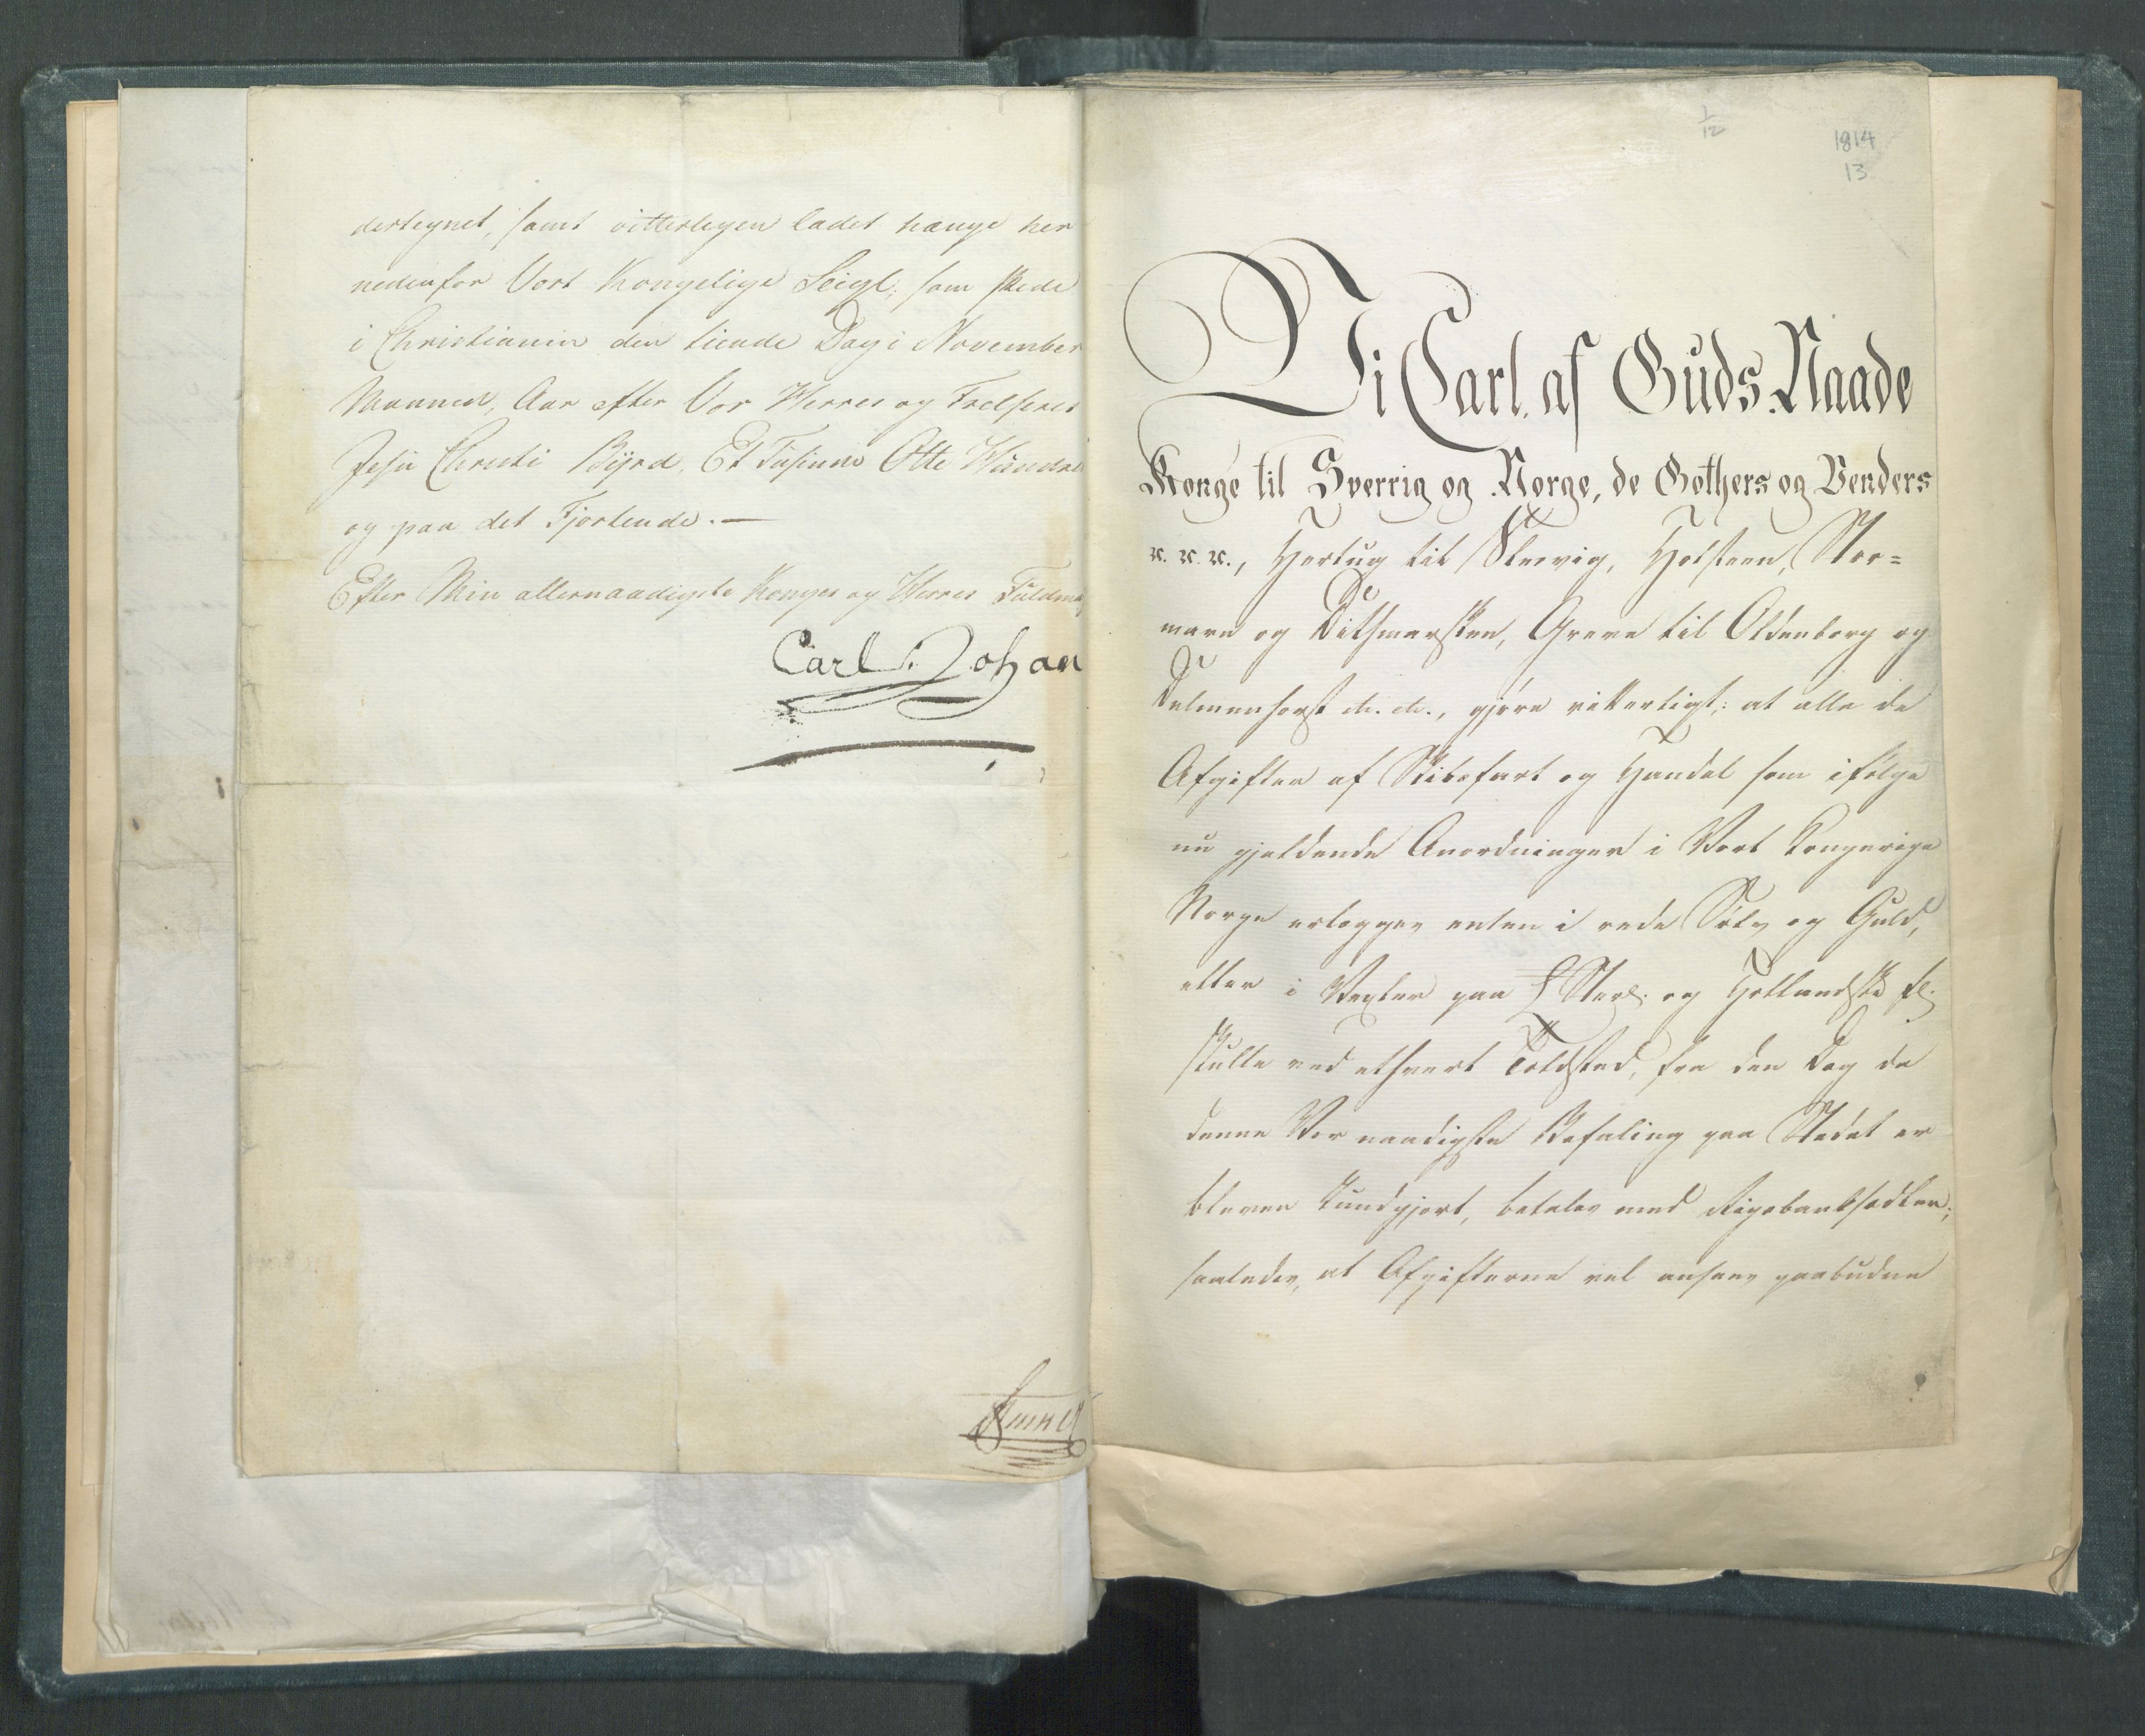 dertegnet, samt vitterligen ladet hænge her
nedenfor Vort Kongelige Seigl; som skede
i Christiania den tiende Dag i November
Maaned, Aar efter Vor Herres og Frelseres
Jesu Christi Byrd, Et Tusinde Otte Hundre
og paa det Fjortende.—
Efter Min allernaadigste Konges og Herres Fuldma
Carl Johan
1/12
1814
13
Vi Carl, af Guds Naade
Konge til Sverrig og Norge, de Gothers og Venders
&c. &c. &c., Hertug til Slesvig, Holsteen, Stor=
marn og Dithmarsken, Greve til Oldenborg og
Delmenhorst etc. etc., gjøre vitterligt: at alle de
Afgifter af Skibsfart og Handel som ifølge
nu gjeldende Anordninger i Vort Kongerige
Norge erlægges enten i rede Sølv og Guld,
eller i Vexler paa £ Sterl. og Hollandske fl.
skulle ved ethvert Toldsted, fra den Dag da
denne Vor naadigste Befaling paa Stedet er
bleven kundgjort, betales med Rigsbanksedler;
saaledes, at Afgifterne vel ansees paabudne